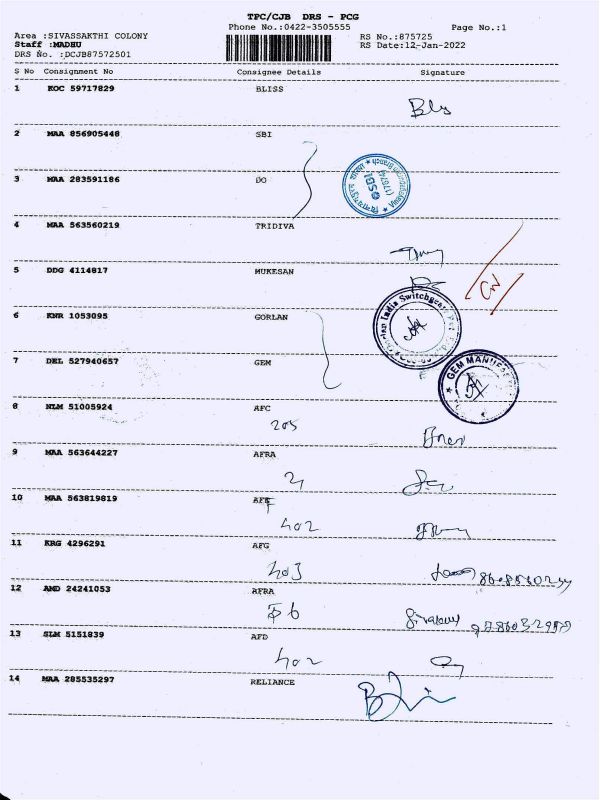 TPC/CJB DRS - PCG
Phone No.:0422-3505555 Page No.:1
Area :SIVASSAKTHI COLONY RS No.:875725
Staff :MADHU RS Date:12-Jan-2022
DRS No. :DCJB87572501
S No Consignment No Consignee Details Signature
1 KOC 59717829 BLISS
2 MAA 856905448 SBI
3 MAA 283591186 DO
SBI
4 MAA 563560219 TRIDIVA
5 DDG 4114817 MUKESAN
6 KNR 1053095 GORLAN
India Switchgear
7 DEL 527940657 GEM
GEM
8 NLM 51005924 AFC
205
9 MAA 563644227 AFRA
10 MAA 563819819
402
11 KRG 4296291 AFG
403
12 AMD 24241053 AFRA
F6
13 SLM 5151839 AFD
402
14 MAA 285535297 RELIANCE